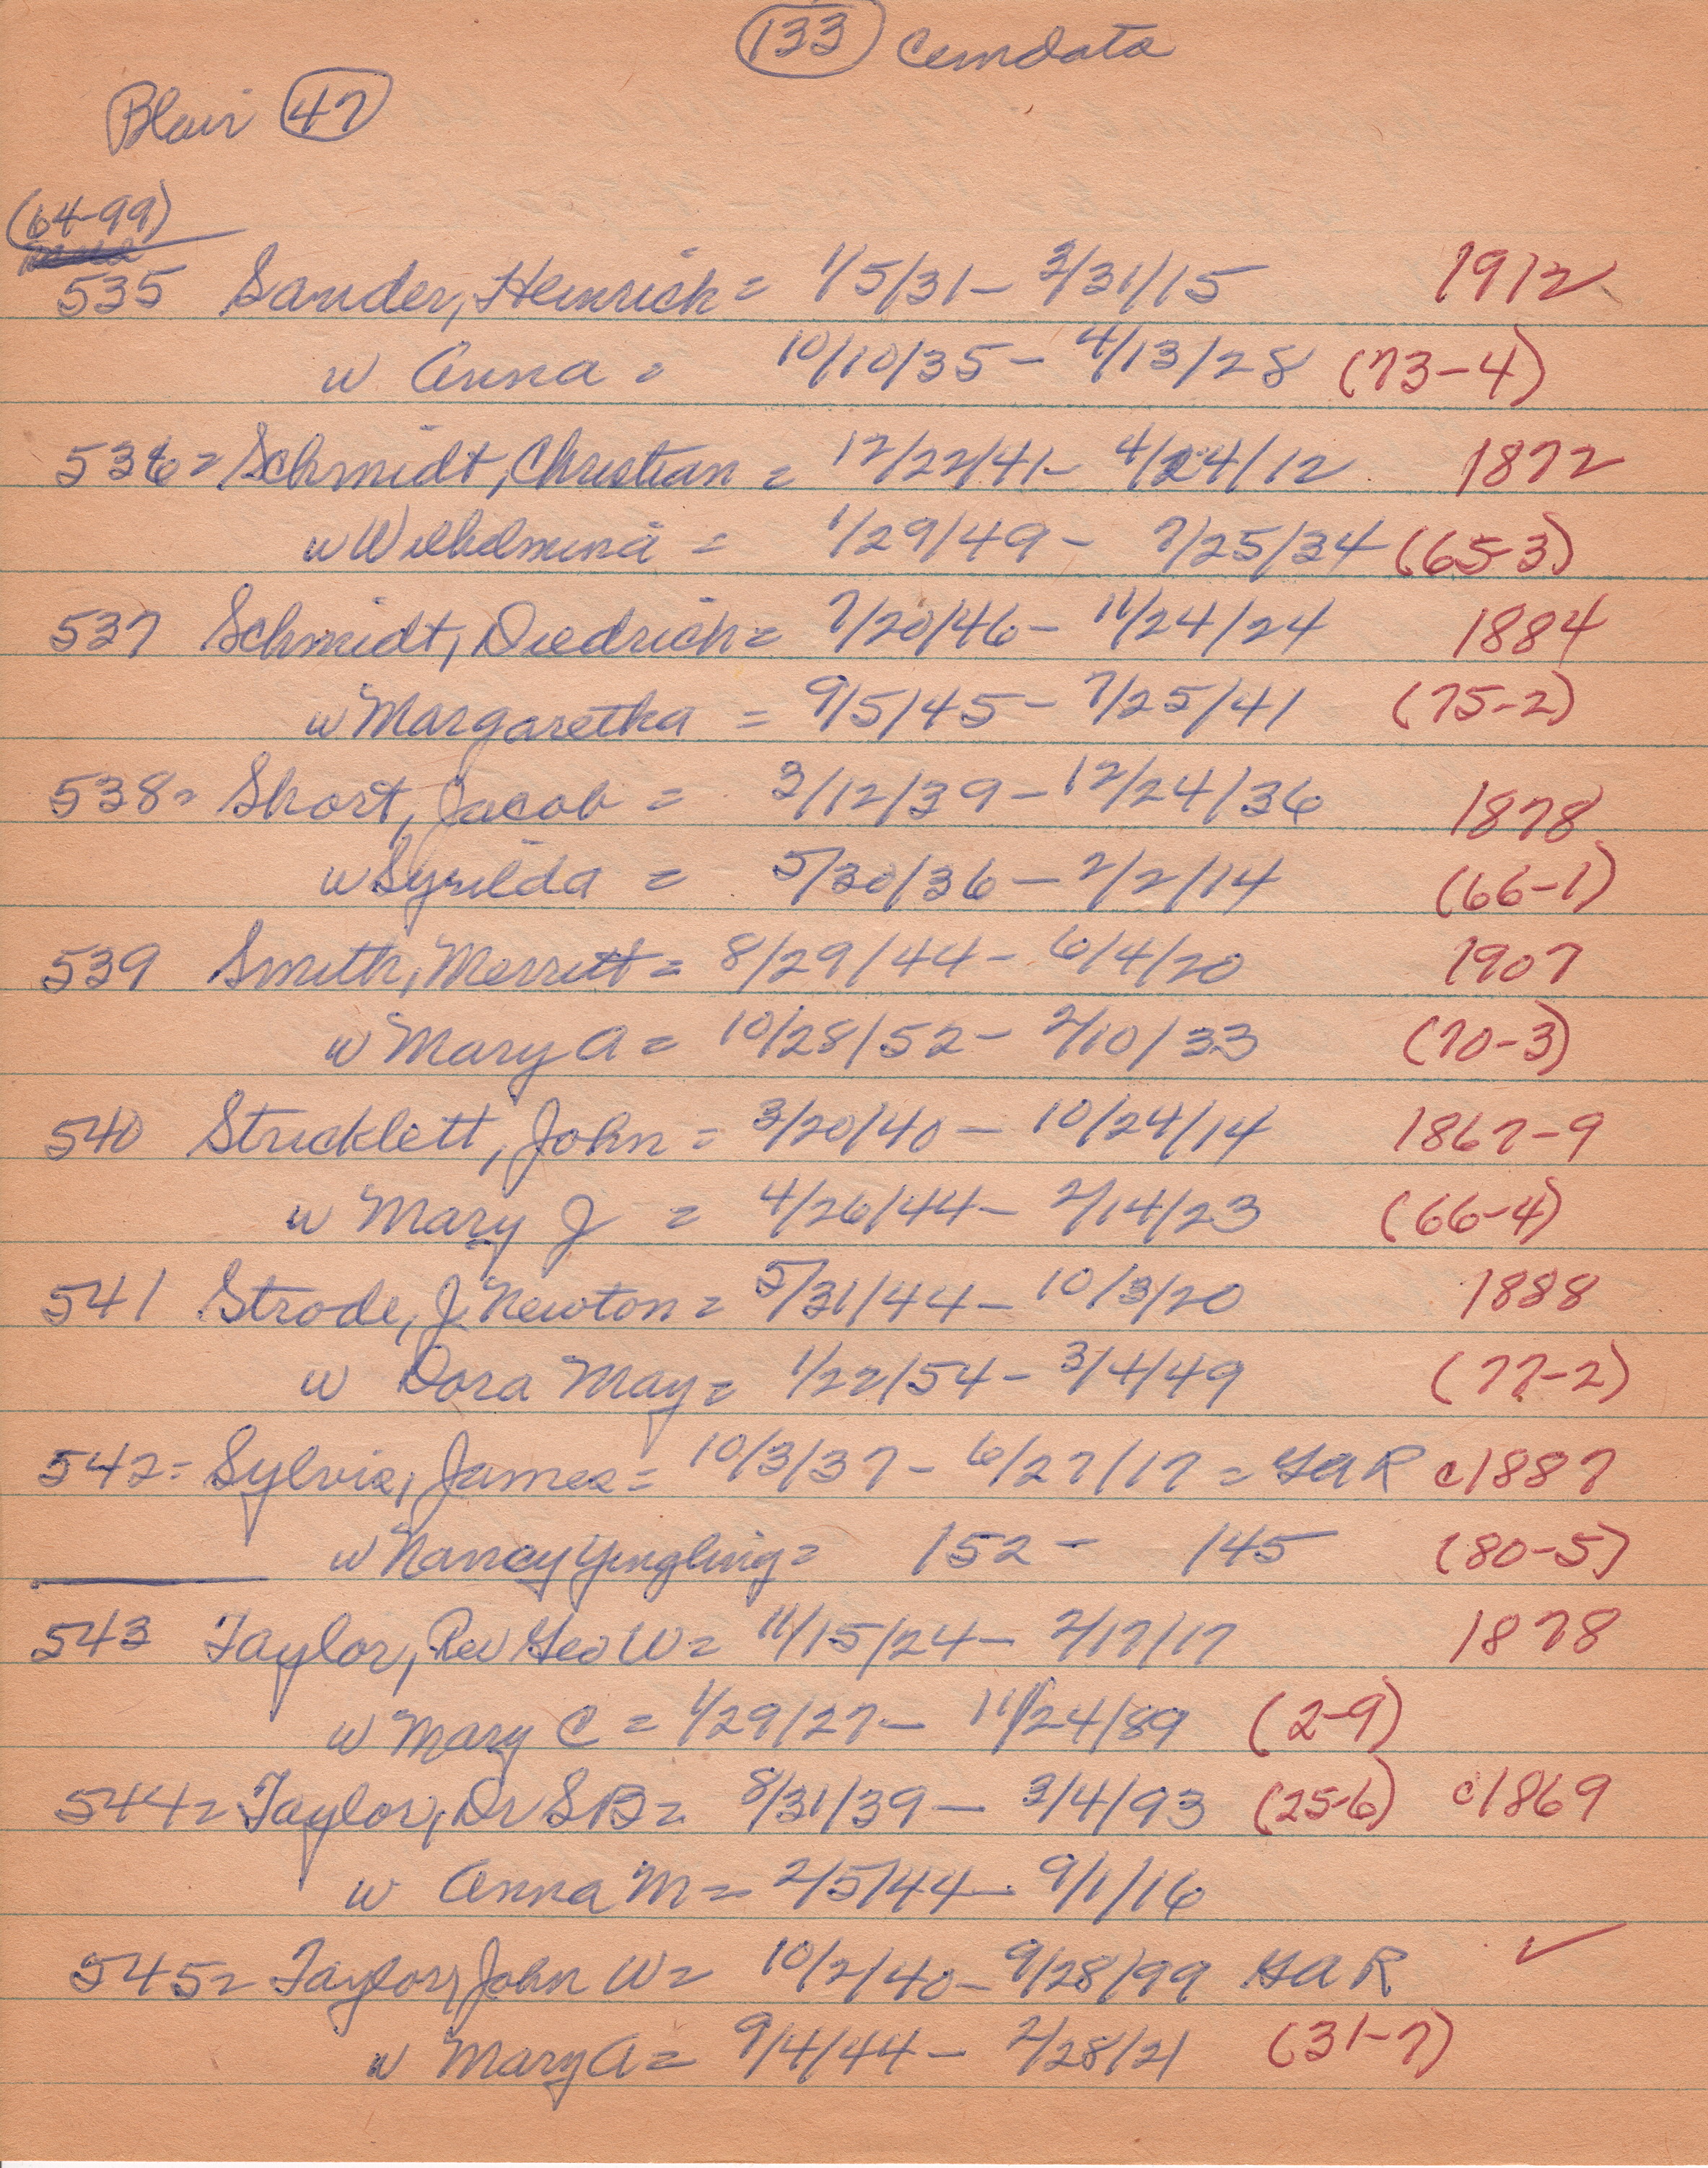 (133) Cemdata
Blair (47)
(64-99)
535 Sander, Heinrich = 1/5/31 - 3/31/15 1912
w Anna = 10/10/35 - 4/13/28 (73-4)
536 = Schmidt, Christian = 12/22/41 - 4/24/12 1872
w Wilhelmina = 1/29/49 - 7/25/34 (65-3)
537 Schmidt, Diedrich = 7/20/46 - 11/24/24 1884
w Margaretha = 9/5/45 - 7/25/41 (75-2)
538 = Short, Jacob = 3/12/39 - 12/24/36 1878
w Syrilda = 5/30/36 - 2/2/14 (66-1)
539 Smith, Merritt = 8/29/44 - 6/4/20 1907
w Mary A = 10/28/52 - 2/10/33 (70-3)
540 Stricklett, John = 3/20/40 - 10/24/14 1867-9
w Mary J = 4/26/44 - 2/14/23 (66-4)
541 Strode, J. Newton = 5/31/44 - 10/3/20 1888
w Dora May = 1/22/54 - 3/4/49 (77-2)
542 = Sylvis, James = 10/3/37 - 6/27/17 = GAR c1887
w Nancy Yingling = /52 - /45 (80-5)
543 Taylor, Rev Geo W = 11/15/24 - 2/17/17 1878
w Mary C = 1/29/27 - 11/24/89 (2-9)
544 = Taylor, Dr S B = 8/31/39 - 3/4/93 (25-6) c1869
w Anna M = 2/5/44 - 9/1/16
545 = Taylor, John W = 10/2/40 - 9/28/99 GAR ✓
w Mary A = 9/4/44 - 2/28/21 (31-7)